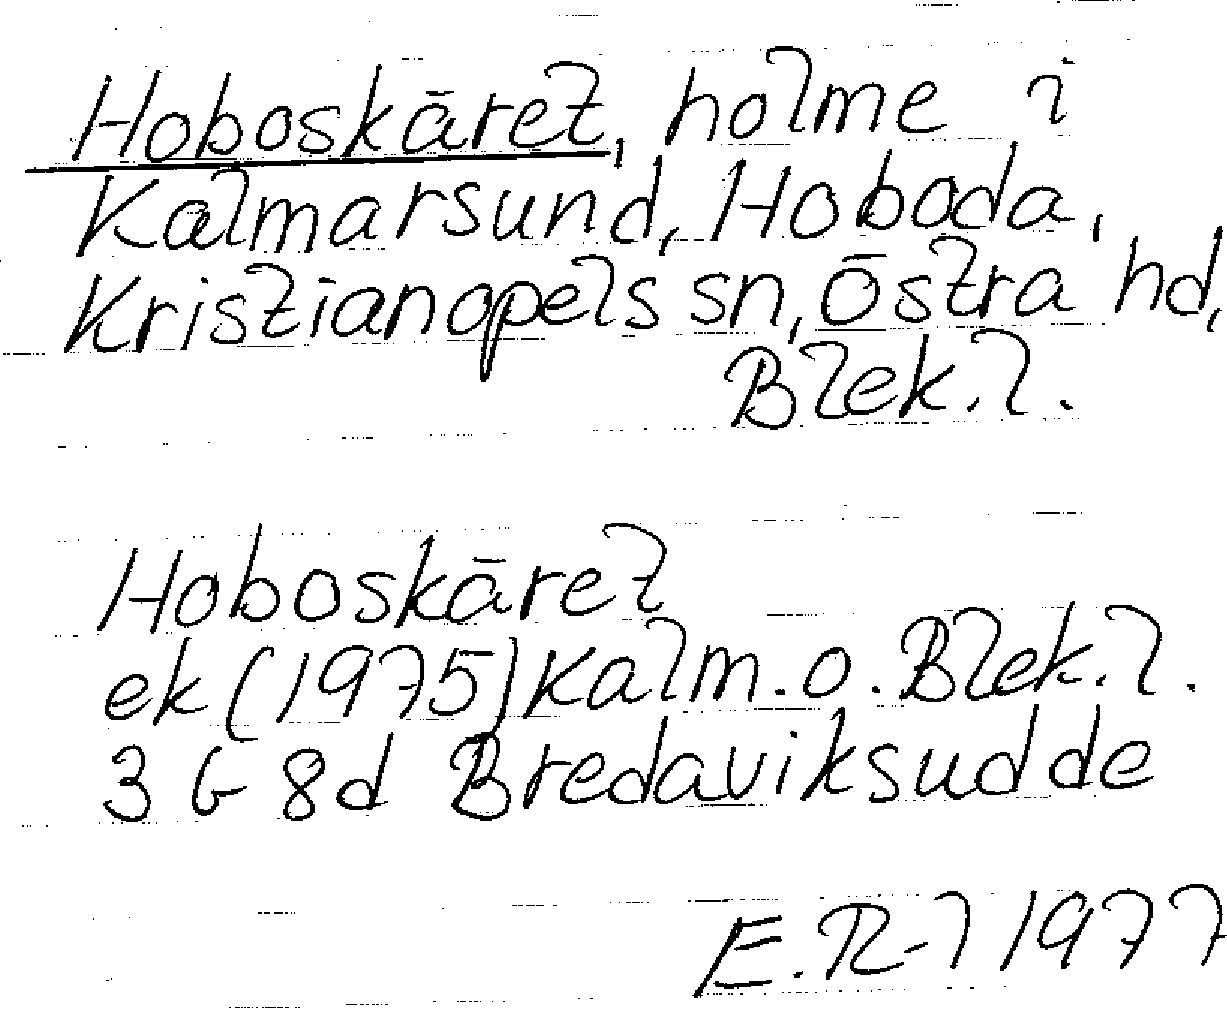 Hoboskäret, holme i
Kalmarsund, Hoboda,
Kristianopels sn, Östra hd,
Blek.l.
Hoboskäret
ek (1975) Kalm.o. Blek.l.
3 G 8d Bredaviksudde
E.R-l 1977